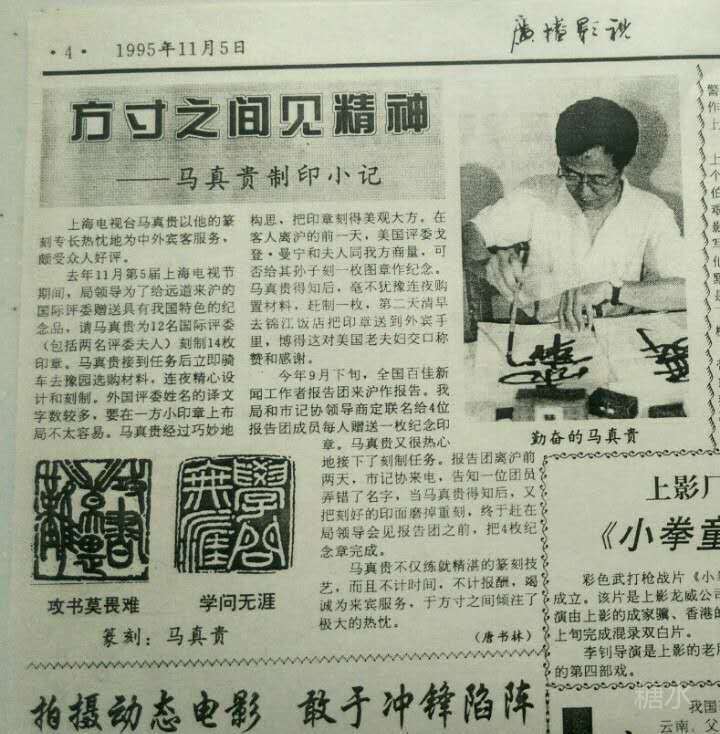 ·4·
1995年11月5日
廣播影视
方寸之间见精神
——马真贵制印小记
上海电视台马真贵以他的篆
刻专长热忱地为中外宾客服务，
颇受众人好评。
去年11月第5届上海电视节
期间，局领导为了给远道来沪的
国际评委赠送具有我国特色的纪
念品，请马真贵为12名国际评委
（包括两名评委夫人）刻制14枚
印章。马真贵接到任务后立即骑
车去豫园选购材料，连夜精心设
计和刻制。外国评委姓名的译文
字数较多，要在一方小印章上布
局不太容易。马真贵经过巧妙地
构思，把印章刻得美观大方。在
客人离沪的前一天，美国评委戈
登·曼宁和夫人同我方商量，可
否给其孙子刻一枚图章作纪念。
马真贵得知后，毫不犹豫连夜购
置材料，赶制一枚，第二天清早
去锦江饭店把印章送到外宾手
里，博得这对美国老夫妇交口称
赞和感谢。
今年9月下旬，全国百佳新
闻工作者报告团来沪作报告。我
局和市记协领导商定联名给4位
报告团成员每人赠送一枚纪念印
章。马真贵又很热心
地接下了刻制任务。报告团离沪前
两天，市记协来电，告知一位团员
弄错了名字，当马真贵得知后，又
把刻好的印面磨掉重刻，终于赶在
局领导会见报告团之前，把4枚纪
念章完成。
马真贵不仅练就精湛的篆刻技
艺，而且不计时间，不计报酬，竭
诚为来宾服务，于方寸之间倾注了
极大的热忱。
（唐书林）
攻书莫畏难
学问无涯
篆刻：马真贵
勤奋的马真贵
上影厂
《小拳童
彩色武打枪战片《小
成立。该片是上影龙威公司
演由上影的成家骥、香港的
上旬完成混录双白片。
李钊导演是上影的老
的第四部戏。
拍摄动态电影 敢于冲锋陷阵
我国
云南、父
糖水